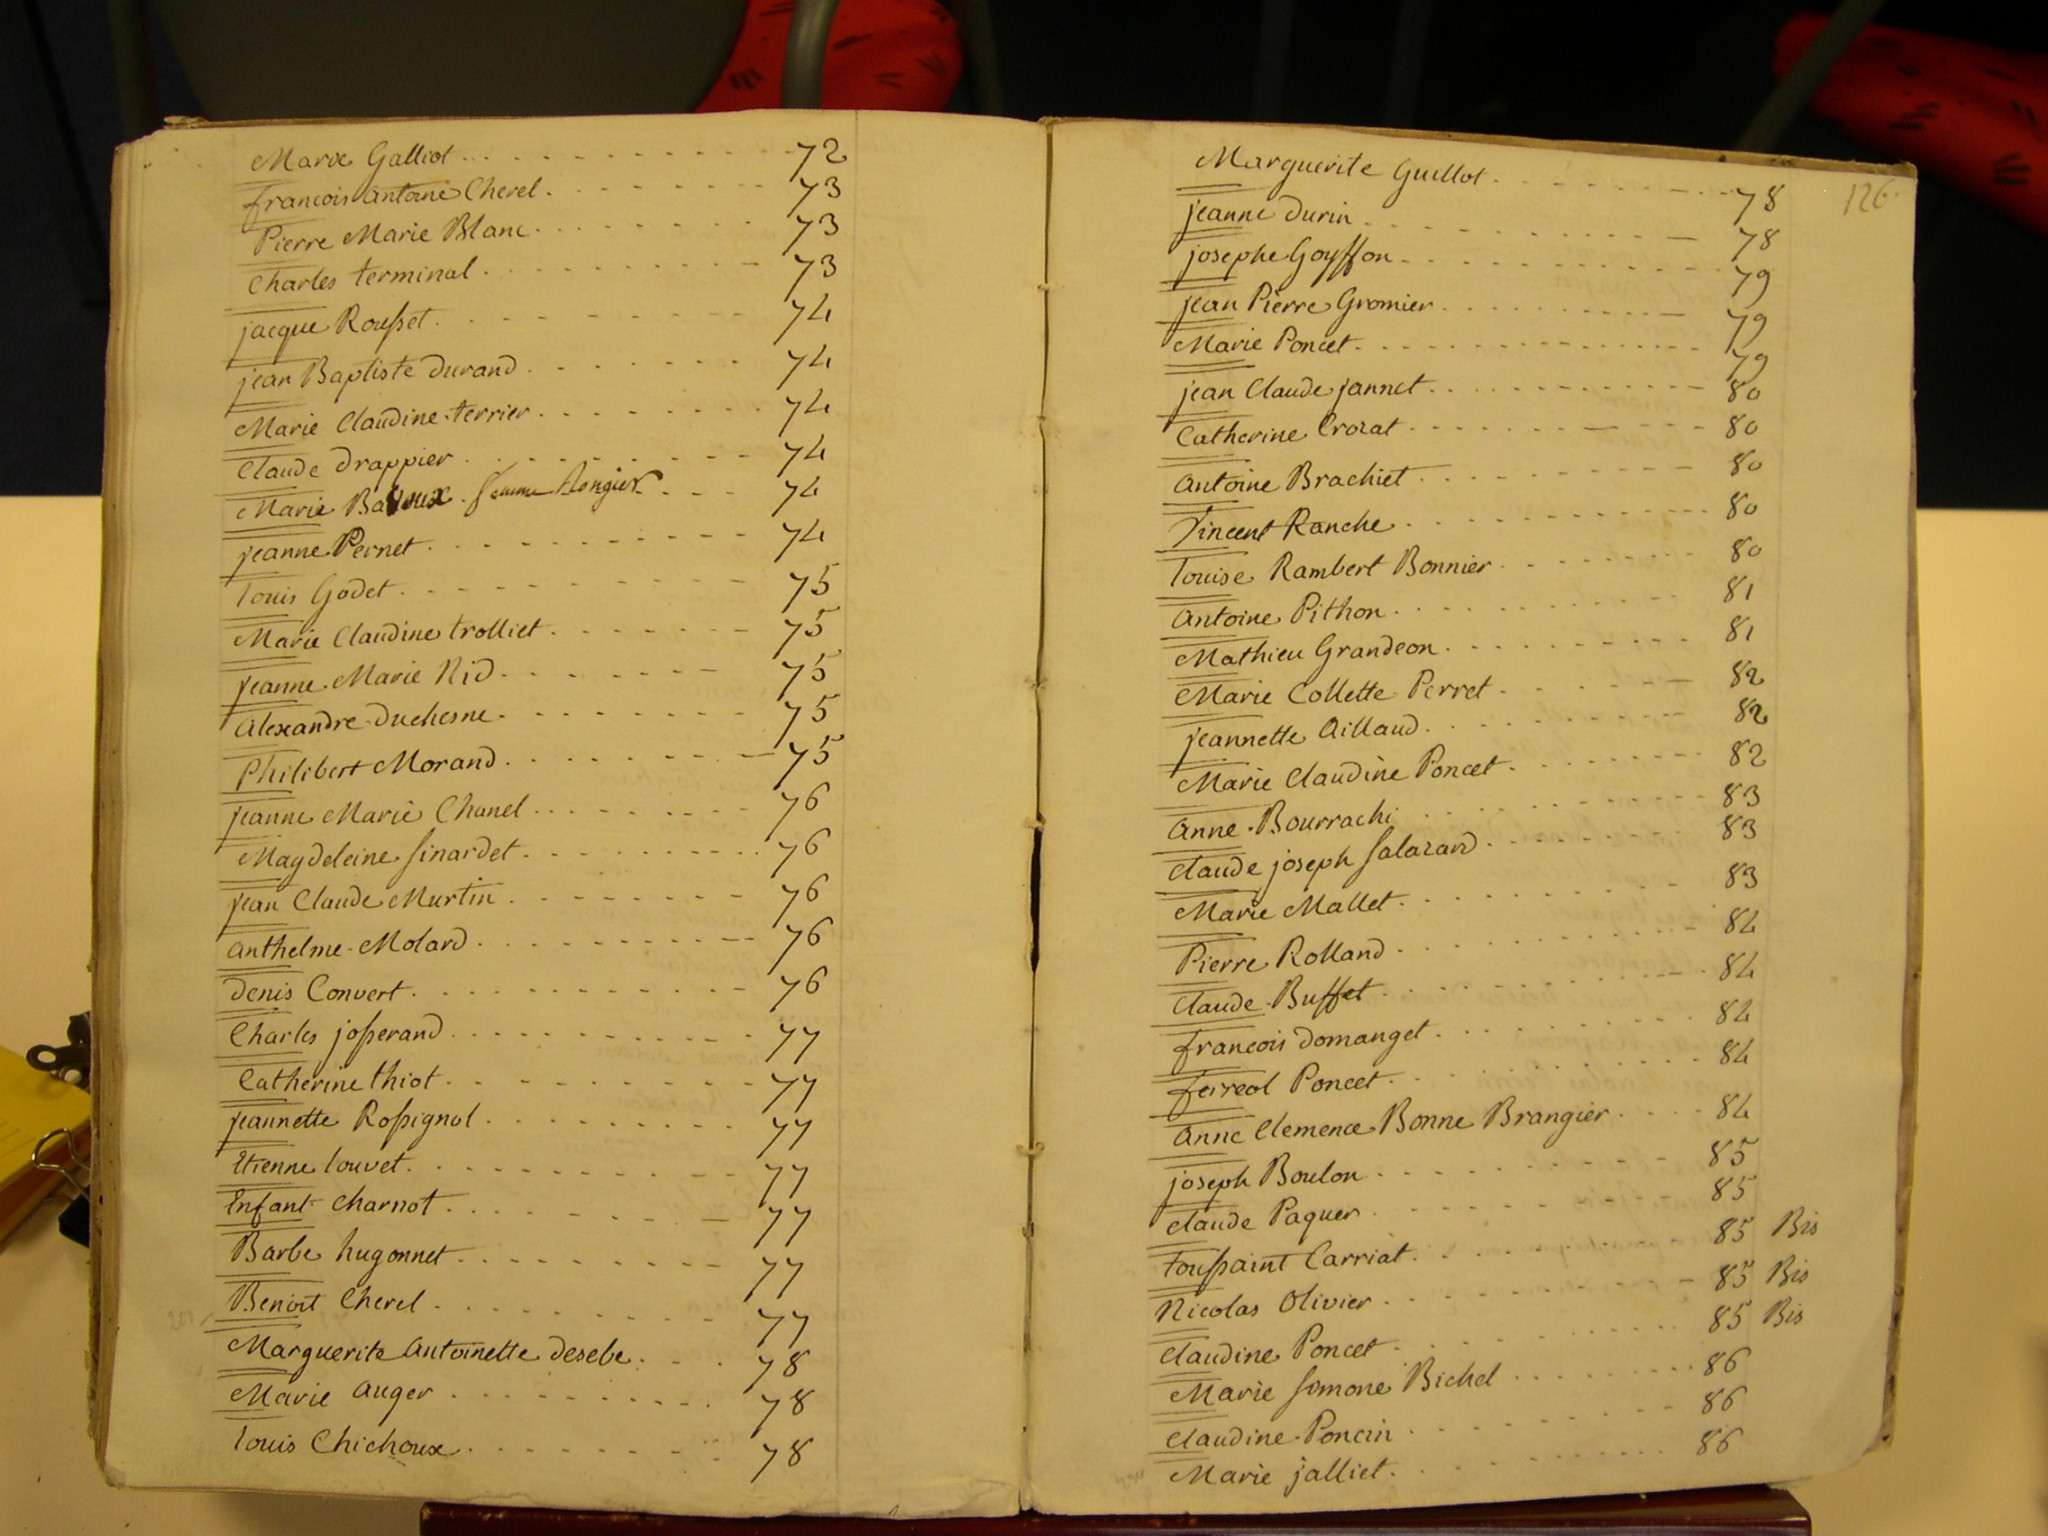 Marie Galliot 72
francois antoine Cherel 73
Pierre Marie Blanc 73
Charles terminal 73
jacque Rousset 74
jean Baptiste durand 74
Marie Claudine terrier 74
Claude drappier 74
Marie femme 74
jeanne Pernet 74
Louis Godet 75
Marie Claudine trolliet 75
jeanne Marie Nid 75
alexandre duchesne 75
Philibert Morand 75
jeanne Marie Chanel 76
Magdeleine sinardet 76
jean Claude Murtin 76
anthelme Molard 76
denis Convert 76
Charles josserand 77
Catherine thiot 77
jeannette Rossignol 77
Etienne louvet 77
Enfant charnot 77
Barbe hugonnet 77
Benoit Cherel 77
Marguerite antoinette desebe 78
Marie auger 78
Louis Chichoux 78
126
Marguerite Guillot 78
jeanne durin 78
josephe Goyffon 79
jean Pierre Gromier 79
Marie Poncet 79
jean Claude jannet 80
Catherine Crozat 80
antoine Brachiet 80
Vincent Ranche 80
Louise Rambert Bonnier 80
antoine Pithon 81
Mathieu Grandeon 81
Marie Collette Perret 82
jeannette aillaud 82
Marie Claudine Poncet 82
anne Bourrachi 83
Claude joseph salazard 83
Marie Mallet 83
Pierre Rolland 84
Claude Buffet 84
francois domanget 84
ferreol Poncet 84
anne Clemence Bonne Brangier 84
joseph Boulon 85
Claude Paquer 85
toussaint Carriat 85 Bis
Nicolas Olivier 85 Bis
Claudine Poncet 85 Bis
Marie simone Bichel 86
Claudine Poncin 86
Marie jalliet 86